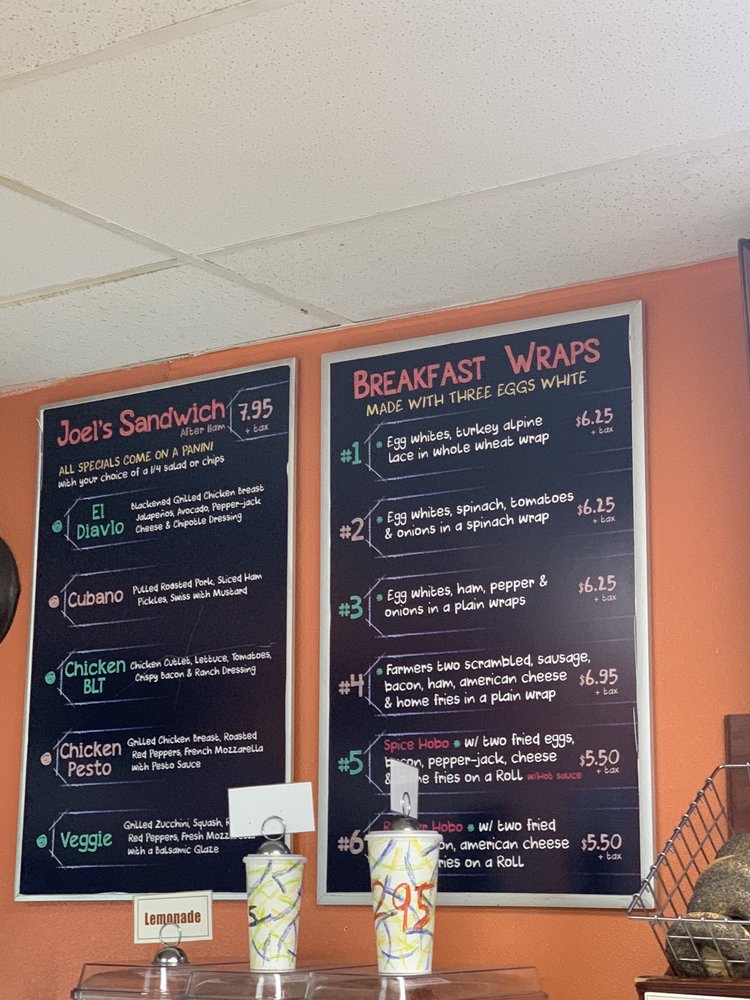 Joel's Sandwich
After 11am
7.95
+ tax
ALL SPECIALS COME ON A PANINI
with your choice of a 1/4 salad or chips
El
Diavlo
Blackened Grilled Chicken Breast
Jalapeños, Avocado, Pepper-jack
Cheese & Chipotle Dressing
Cubano
Pulled Roasted Pork, Sliced Ham
Pickles, Swiss with Mustard
Chicken
BLT
Chicken Cutlet, Lettuce, Tomatoes,
Crispy Bacon & Ranch Dressing
Chicken
Pesto
Grilled Chicken Breast, Roasted
Red Peppers, French Mozzarella
with Pesto Sauce
Veggie
Grilled Zucchini, Squash,
Red Peppers, Fresh
with a Balsamic Glaze
BREAKFAST WRAPS
MADE WITH THREE EGGS WHITE
#1
Egg whites, turkey alpine
lace in whole wheat wrap
$6.25
+ tax
#2
Egg whites, spinach, tomatoes
& onions in a spinach wrap
$6.25
+ tax
#3
Egg whites, ham, pepper &
onions in a plain wraps
$6.25
+ tax
#4
Farmers two scrambled, sausage,
bacon, ham, american cheese
& home fries in a plain wrap
$6.95
+ tax
#5
Spice Hobo w/ two fried eggs,
bacon, pepper-jack, cheese
& fries on a Roll w/Hot sauce
$5.50
+ tax
#6
Hobo w/ two fried
american cheese
fries on a Roll
$5.50
+ tax
Lemonade
5
295